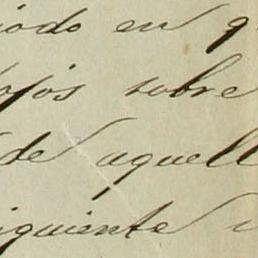 iodo en q
ojos sobre
de aquell
iguiente